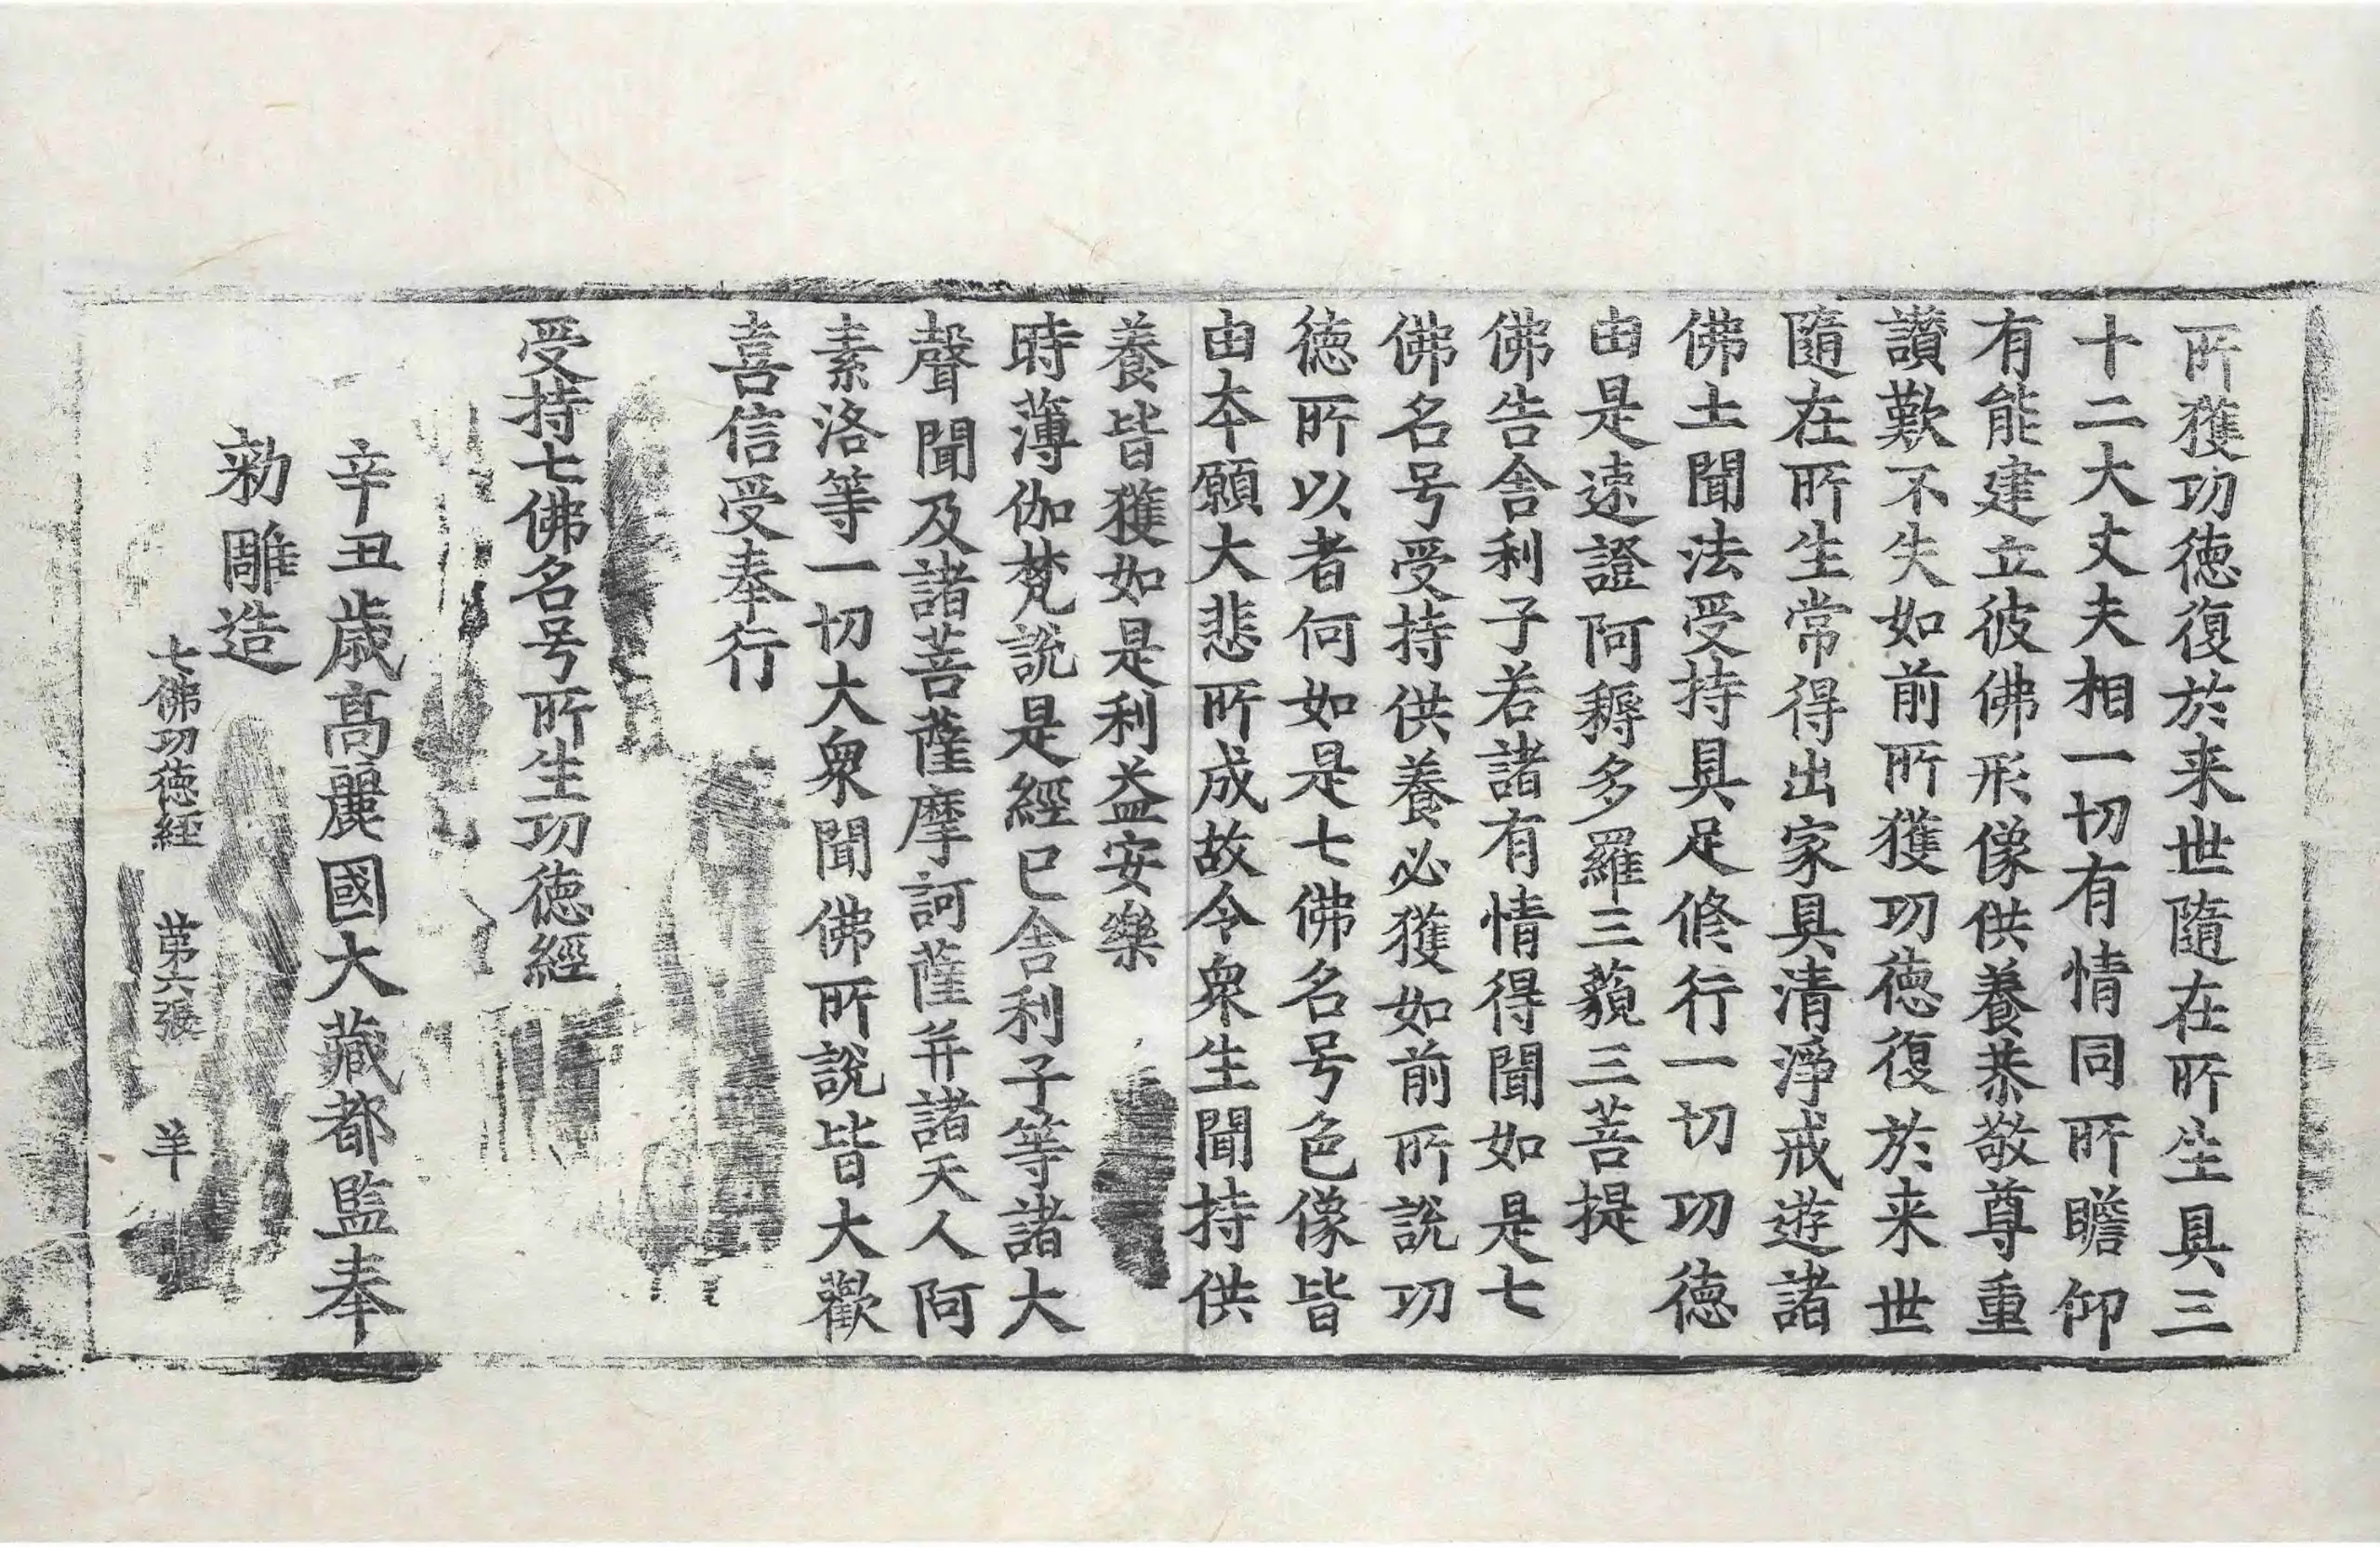 所獲功徳復於来世隨在所生具三
十二大丈夫相一切有情同所瞻仰
有能建立彼佛形像供養恭敬尊重
讃歎不失如前所獲功徳復於来世
隨在所生常得出家具清淨戒遊諸
佛土聞法受持具足修行一切功徳
由是速證阿耨多羅三藐三菩提
佛告舎利子若諸有情得聞如是七
佛名号受持供養必獲如前所說功
徳所以者何如是七佛名号色像皆
由夲願大悲所成故令衆生聞持供
養皆獲如是利益安樂
時薄伽梵說是經已舎利子等諸大
聲聞及諸菩薩摩訶薩并諸天人阿
素洛等一切大衆聞佛所說皆大歡
喜信受奉行
受持七佛名号所生功徳經
辛丑歳高麗國大藏都監奉
勑雕造
七佛功徳経 苐六張 羊